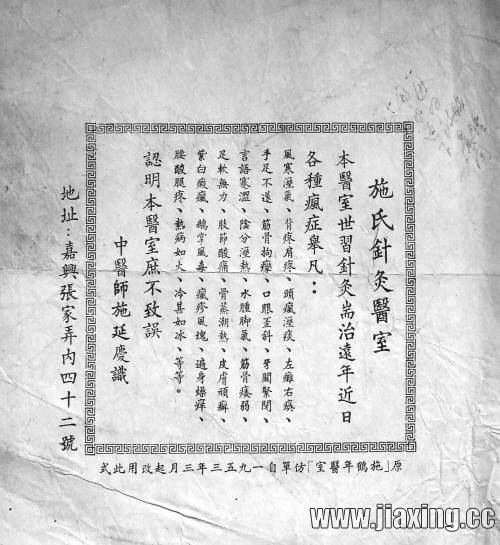 施氏針灸醫室
本醫室世習針灸耑治遠年近日
各種瘋症舉凡：
風寒溼氣、背疼肩疼、頭瘋溼痰、左癱右瘓、
手足不遂、筋骨拘攣、口眼歪斜、牙關緊閉、
言語蹇澀、陰分溼熱、水腫脚氣、筋骨痿弱、
足軟無力、肢節酸痛、骨蒸潮熱、皮膚頑癬、
紫白癜瘋、鵝掌風毒、癮疹風塊、遍身燥痒、
腰酸腿疼、熱病如火、冷甚如冰、等等。
認明本醫室庶不致誤
中醫師施延慶識
地址：嘉興張家弄內四十二號
原「施鶴年醫室」仿單自一九五三年三月起改用此式
www.jiaxing.cc